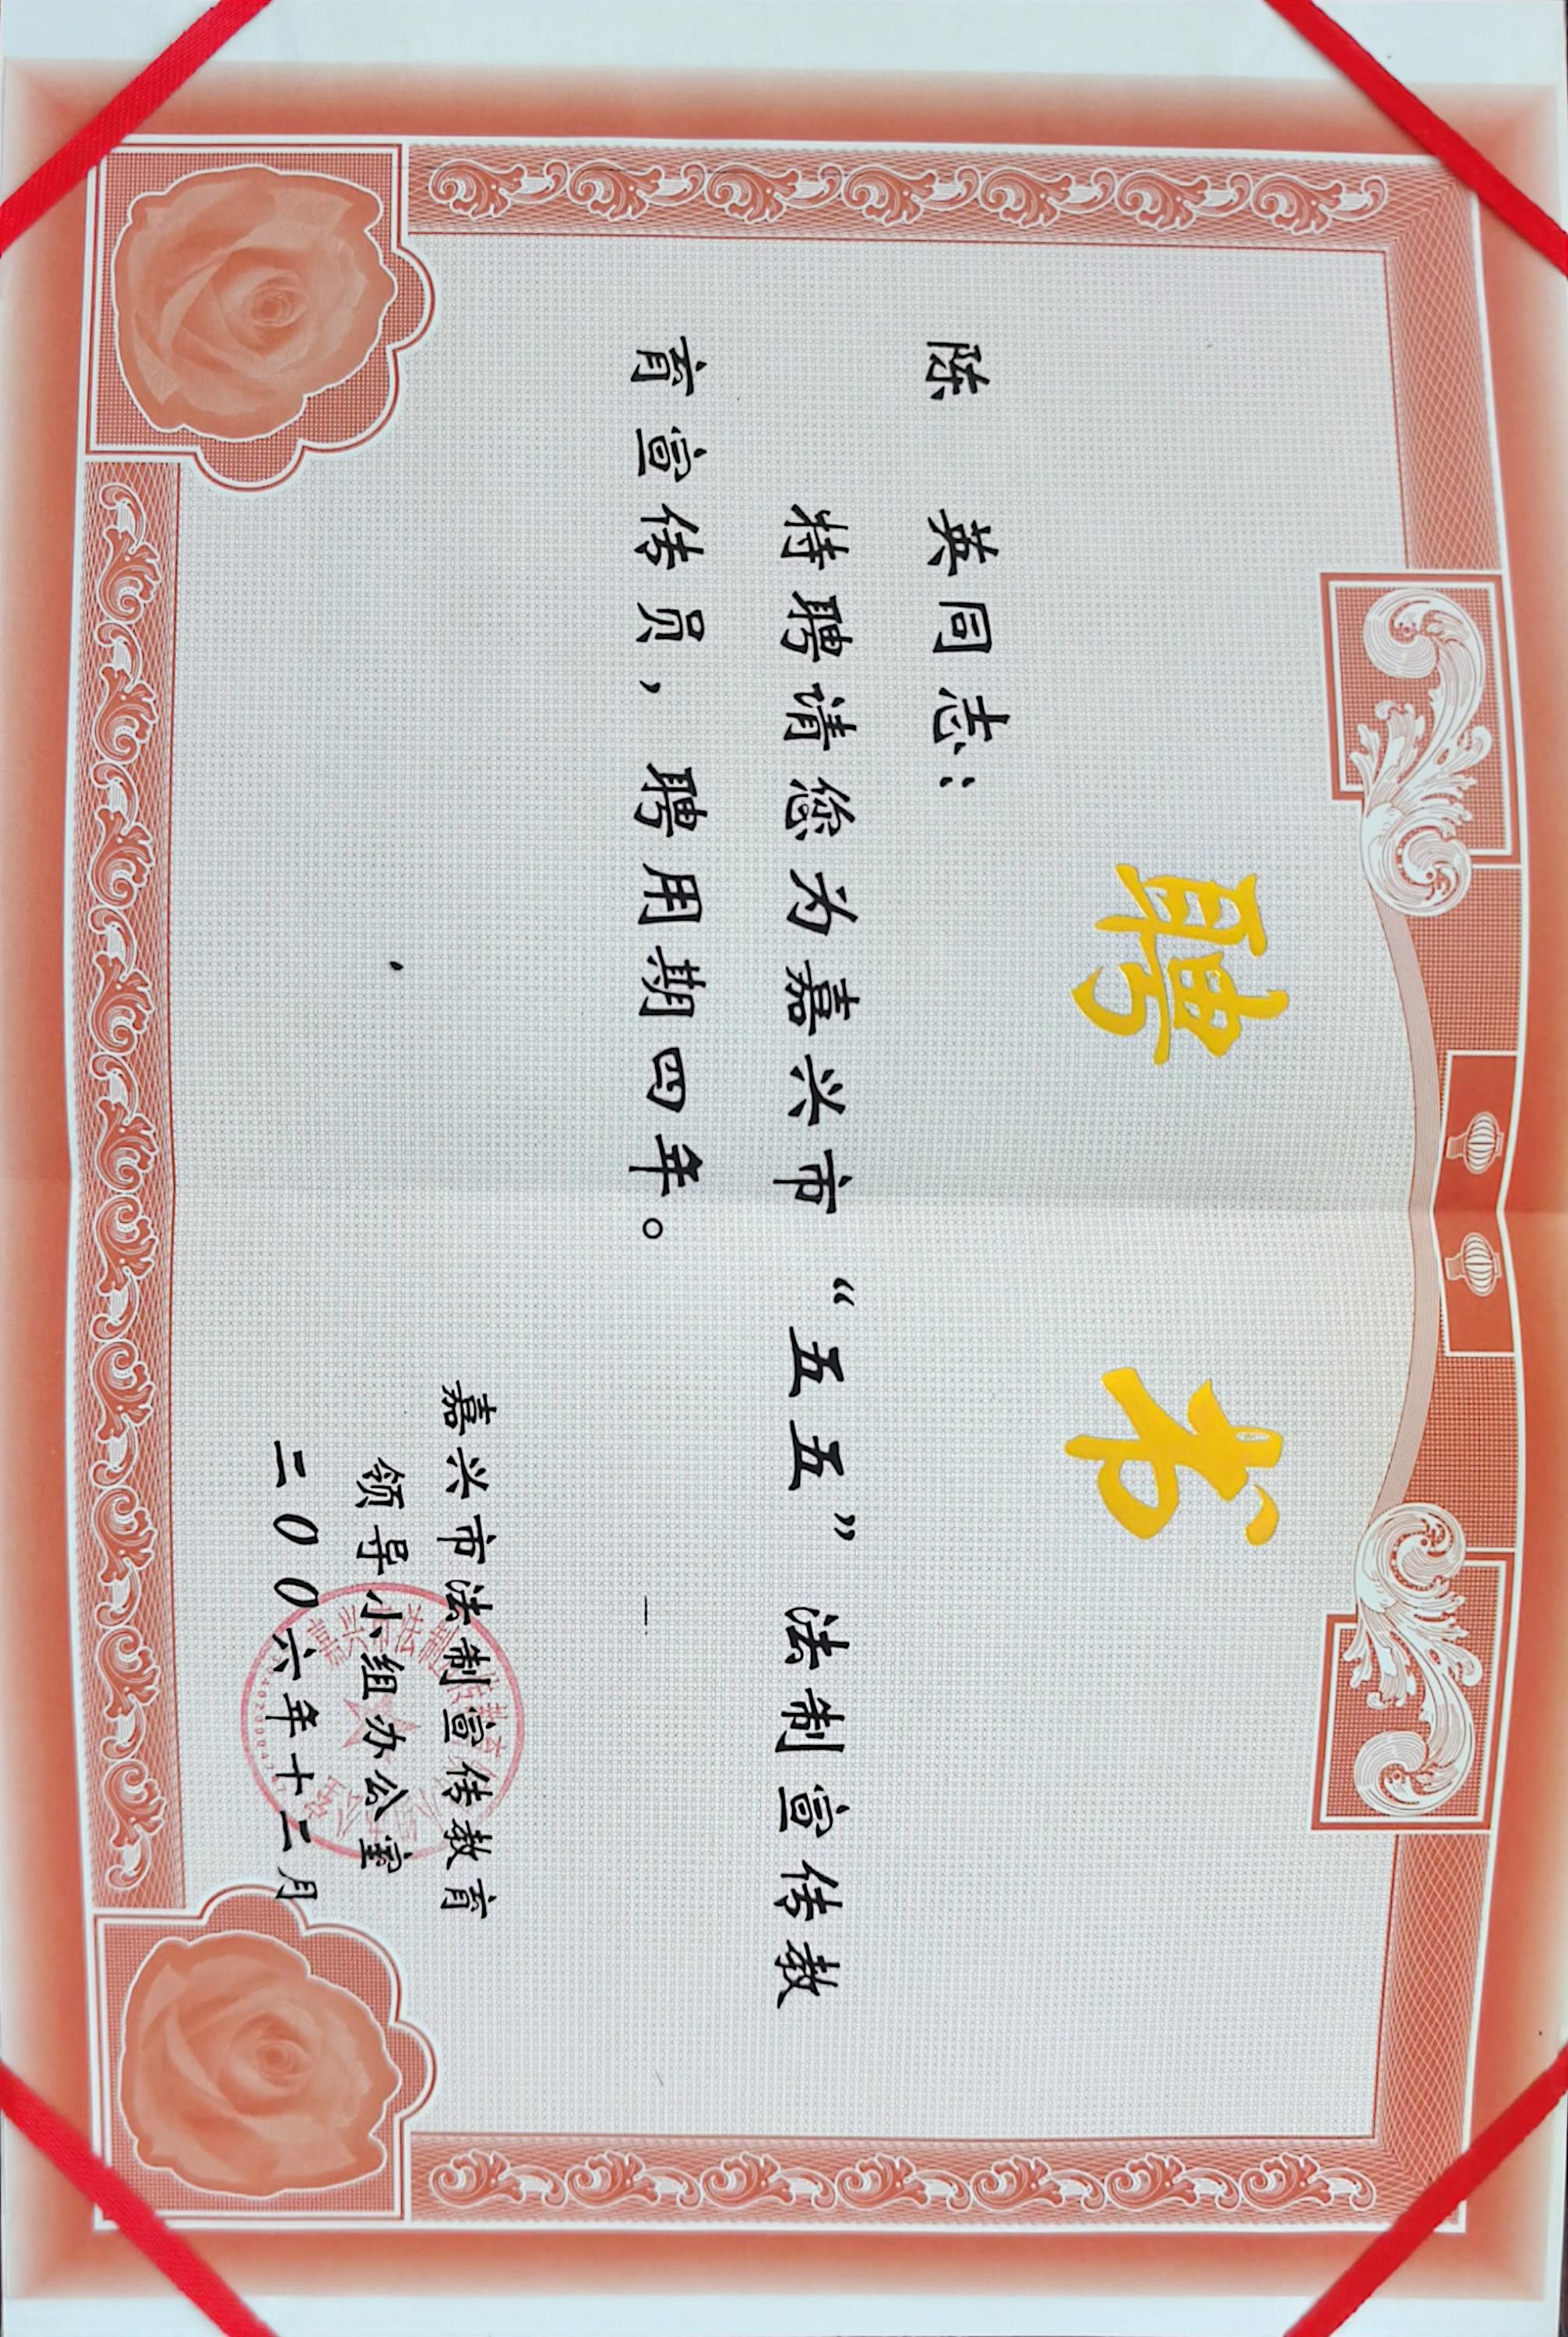 聘书
陈 英同志：
特聘请您为嘉兴市“五五”法制宣传教
育宣传员，聘用期四年。
嘉兴市法制宣传教育
领导小组办公室
二00六年十二月